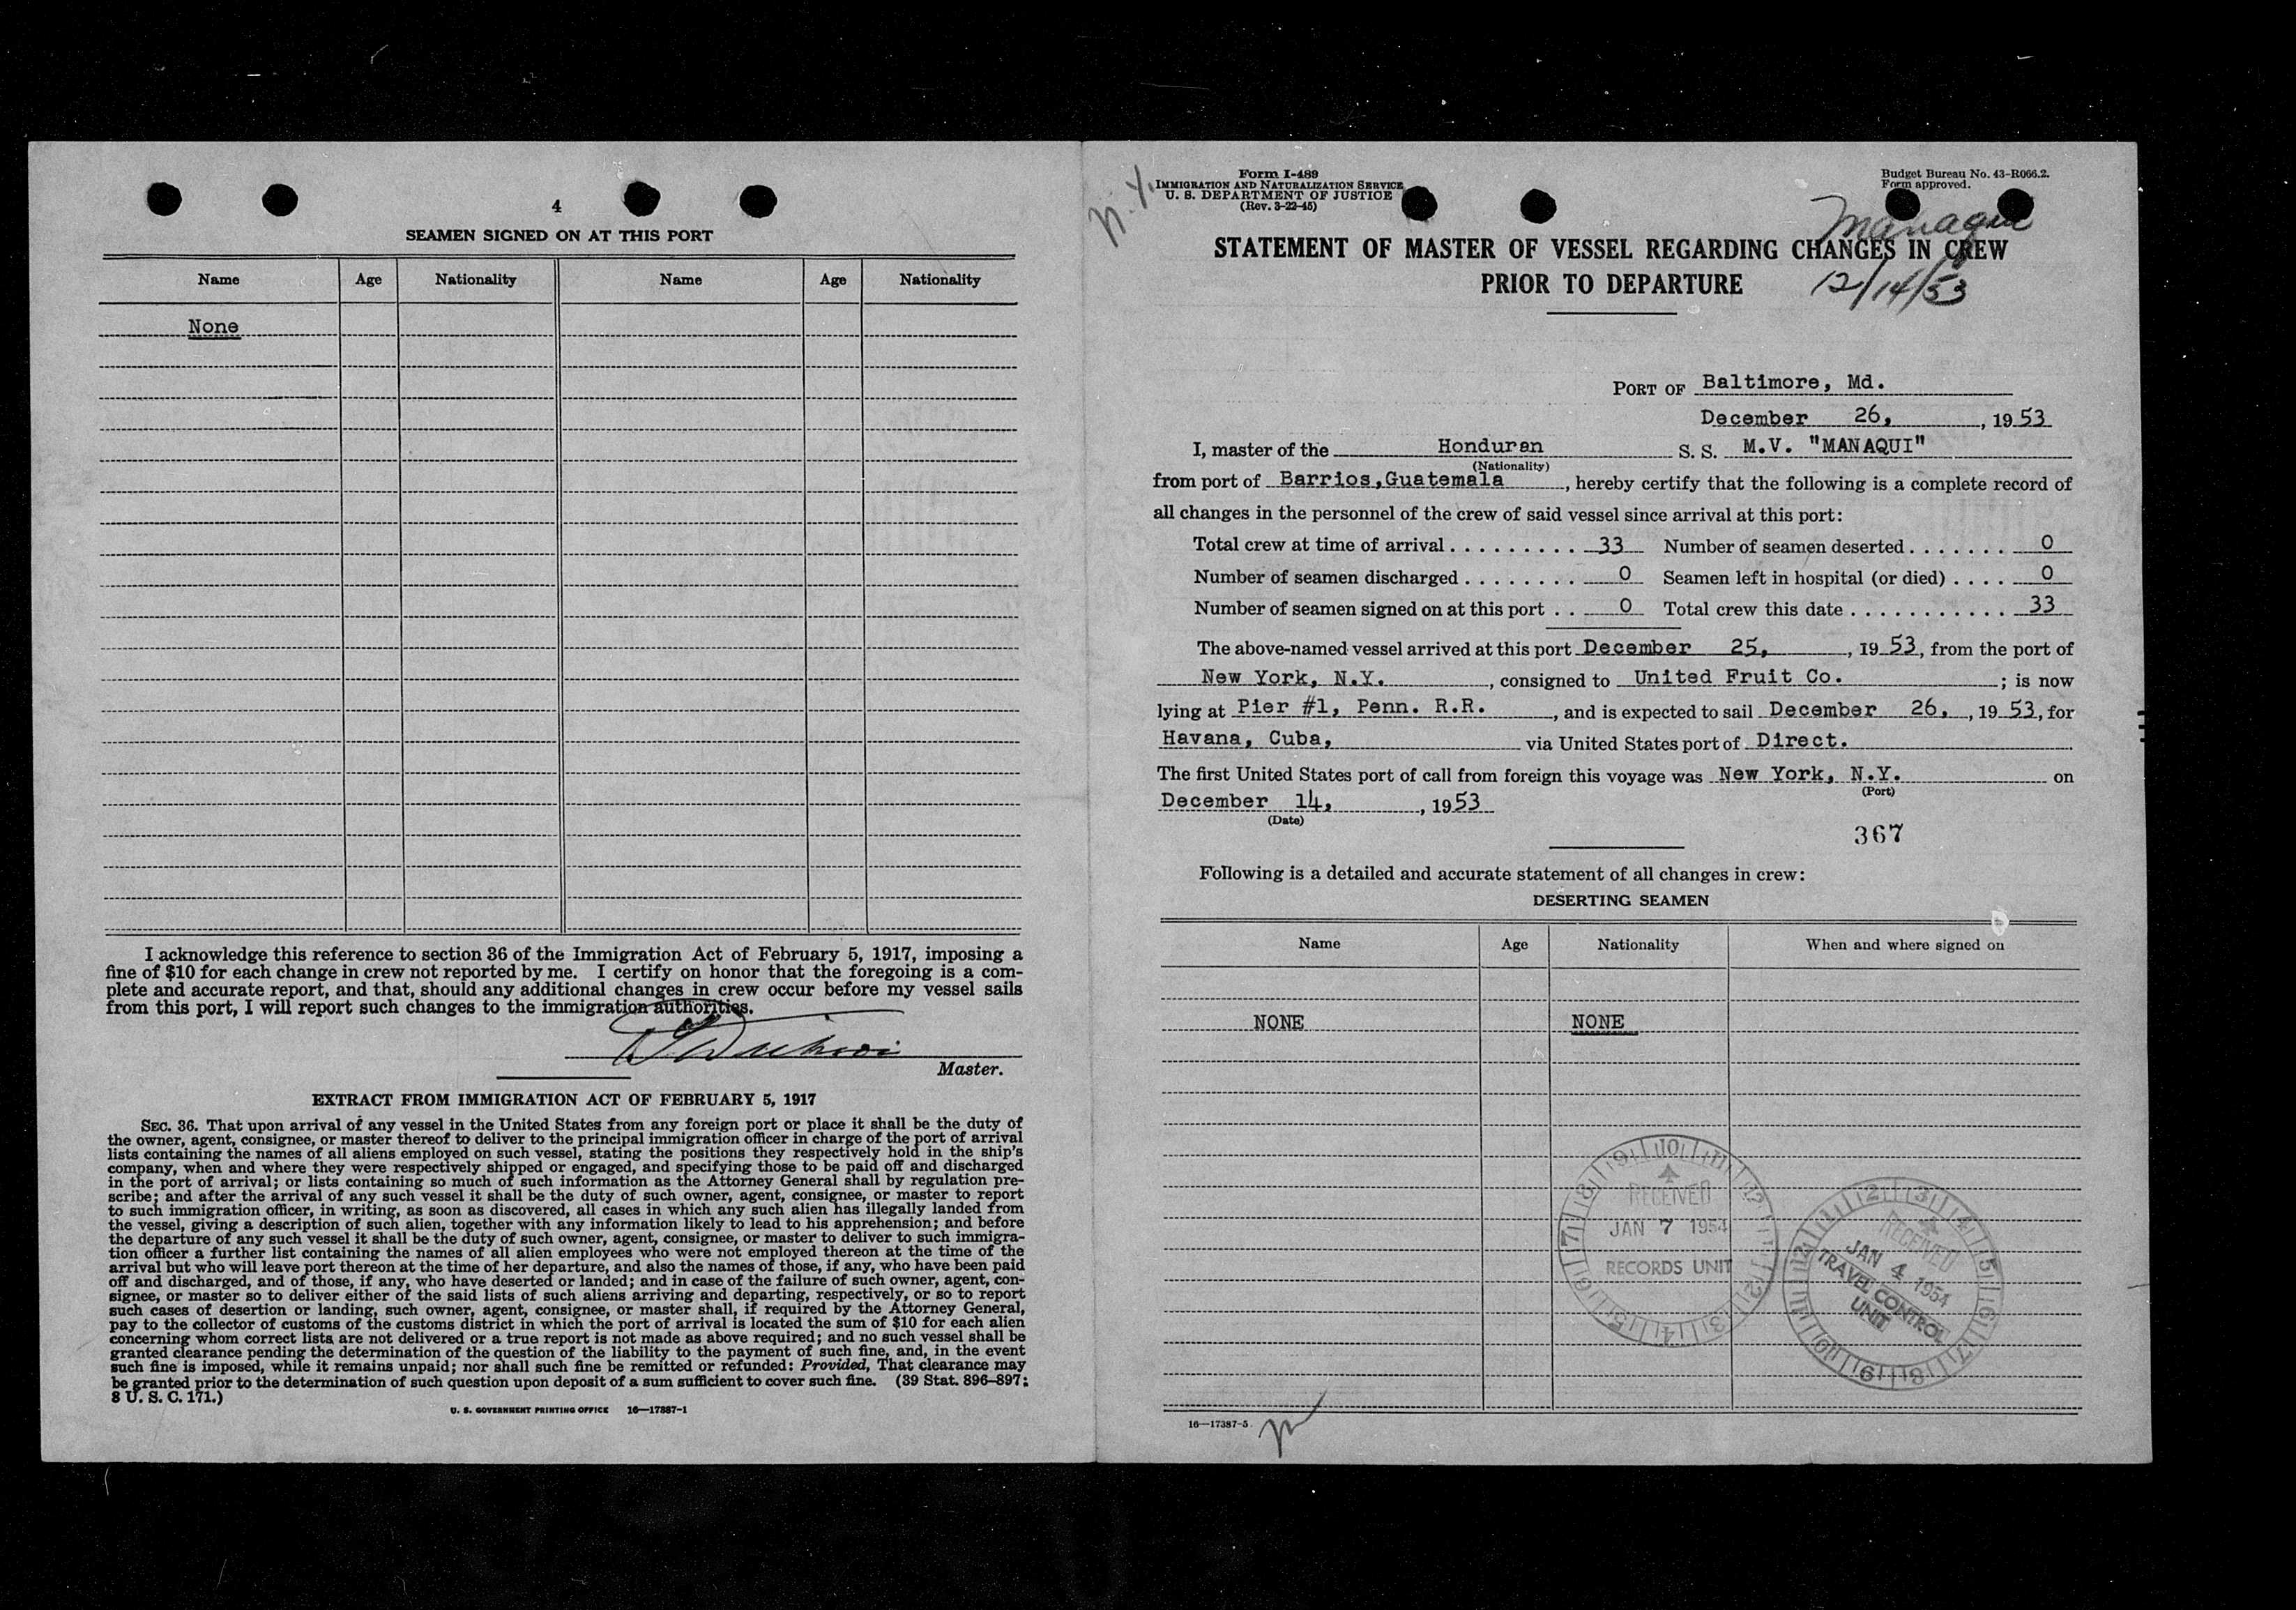 4
SEAMEN SIGNED ON AT THIS PORT
Name Age Nationality Name Age Nationality
None
I acknowledge this reference to section 36 of the Immigration Act of February 5, 1917, imposing a
fine of $10 for each change in crew not reported by me. I certify on honor that the foregoing is a com-
plete and accurate report, and that, should any additional changes in crew occur before my vessel sails
from this port, I will report such changes to the immigration authorities.
Master.
EXTRACT FROM IMMIGRATION ACT OF FEBRUARY 5, 1917
SEC. 36. That upon arrival of any vessel in the United States from any foreign port or place it shall be the duty of
the owner, agent, consignee, or master thereof to deliver to the principal immigration officer in charge of the port of arrival
lists containing the names of all aliens employed on such vessel, stating the positions they respectively hold in the ship's
company, when and where they were respectively shipped or engaged, and specifying those to be paid off and discharged
in the port of arrival; or lists containing so much of such information as the Attorney General shall by regulation pre-
scribe; and after the arrival of any such vessel it shall be the duty of such owner, agent, consignee, or master to report
to such immigration officer, in writing, as soon as discovered, all cases in which any such alien has illegally landed from
the vessel, giving a description of such alien, together with any information likely to lead to his apprehension; and before
the departure of any such vessel it shall be the duty of such owner, agent, consignee, or master to deliver to such immigra-
tion officer a further list containing the names of all alien employees who were not employed thereon at the time of the
arrival but who will leave port thereon at the time of her departure, and also the names of those, if any, who have been paid
off and discharged, and of those, if any, who have deserted or landed; and in case of the failure of such owner, agent, con-
signee, or master so to deliver either of the said lists of such aliens arriving and departing, respectively, or so to report
such cases of desertion or landing, such owner, agent, consignee, or master shall, if required by the Attorney General,
pay to the collector of customs of the customs district in which the port of arrival is located the sum of $10 for each alien
concerning whom correct lists are not delivered or a true report is not made as above required; and no such vessel shall be
granted clearance pending the determination of the question of the liability to the payment of such fine, and, in the event
such fine is imposed, while it remains unpaid; nor shall such fine be remitted or refunded: Provided, That clearance may
be granted prior to the determination of such question upon deposit of a sum sufficient to cover such fine. (39 Stat. 896–897;
8 U. S. C. 171.)
U. S. GOVERNMENT PRINTING OFFICE 16—17387-1
N.Y.
Form I-489
IMMIGRATION AND NATURALIZATION SERVICE
U. S. DEPARTMENT OF JUSTICE
(Rev. 3-22-45)
Budget Bureau No. 43-R066.2.
Form approved.
Manaqui
STATEMENT OF MASTER OF VESSEL REGARDING CHANGES IN CREW
PRIOR TO DEPARTURE
12/14/53
PORT OF Baltimore, Md.
December 26, , 19 53
I, master of the Honduran S. S. M.V. "MANAQUI"
(Nationality)
from port of Barrios,Guatemala , hereby certify that the following is a complete record of
all changes in the personnel of the crew of said vessel since arrival at this port:
Total crew at time of arrival . . . . . . . . . 33 Number of seamen deserted . . . . . . . 0
Number of seamen discharged . . . . . . . . 0 Seamen left in hospital (or died) . . . . 0
Number of seamen signed on at this port . . 0 Total crew this date . . . . . . . . . . . 33
The above-named vessel arrived at this port December 25, , 19 53, from the port of
New York, N.Y. , consigned to United Fruit Co. ; is now
lying at Pier #1, Penn. R.R. , and is expected to sail December 26, , 19 53, for
Havana, Cuba, via United States port of Direct.
The first United States port of call from foreign this voyage was New York, N.Y. on
(Port)
December 14, , 19 53
(Date)
367
Following is a detailed and accurate statement of all changes in crew:
DESERTING SEAMEN
Name Age Nationality When and where signed on
NONE NONE
RECEIVED
JAN 7 1954
RECORDS UNIT
RECEIVED
JAN 4 1954
TRAVEL CONTROL
UNIT
16—17387-5